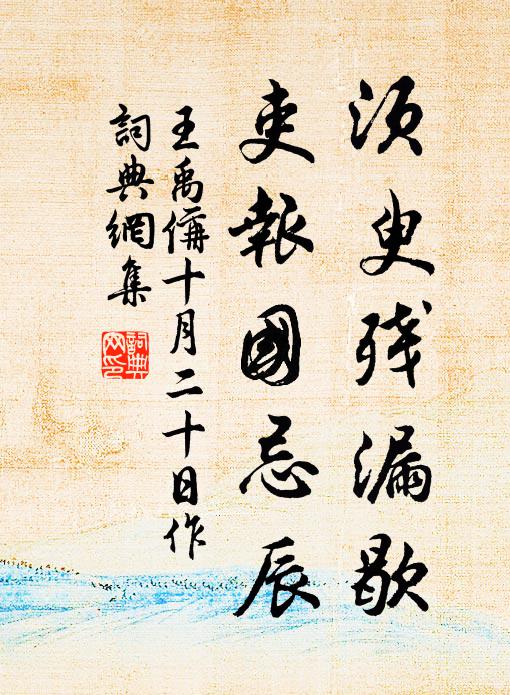 须臾残漏歇
吏報國忌辰
王禹偁十月二十日作
詞典網集
詞典
文印